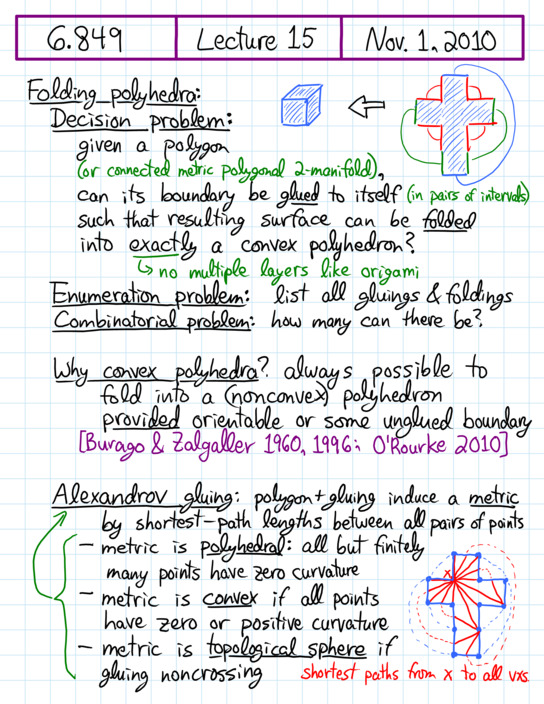 6.849 Lecture 15 Nov. 1, 2010
Folding polyhedra:
Decision problem:
given a polygon
(or connected metric polygonal 2-manifold),
can its boundary be glued to itself (in pairs of intervals)
such that resulting surface can be folded
into exactly a convex polyhedron?
↳ no multiple layers like origami
Enumeration problem: list all gluings & foldings
Combinatorial problem: how many can there be?
Why convex polyhedra? always possible to
fold into a (nonconvex) polyhedron
provided orientable or some unglued boundary
[Burago & Zalgaller 1960, 1996; O'Rourke 2010]
Alexandrov gluing: polygon+gluing induce a metric
by shortest-path lengths between all pairs of points
- metric is polyhedral: all but finitely
many points have zero curvature
- metric is convex if all points
have zero or positive curvature
- metric is topological sphere if
gluing noncrossing
x
shortest paths from x to all vxs.